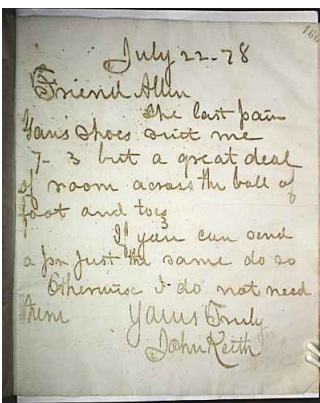 166
July 22-78
Friend Allen
The last pair
Yaris shoes suit me
7-3 but a great deal
of room across the ball of
foot and toes
If you can send
a pr just the same do so
Otherwise I do not need
them Yours Truly
John Keith